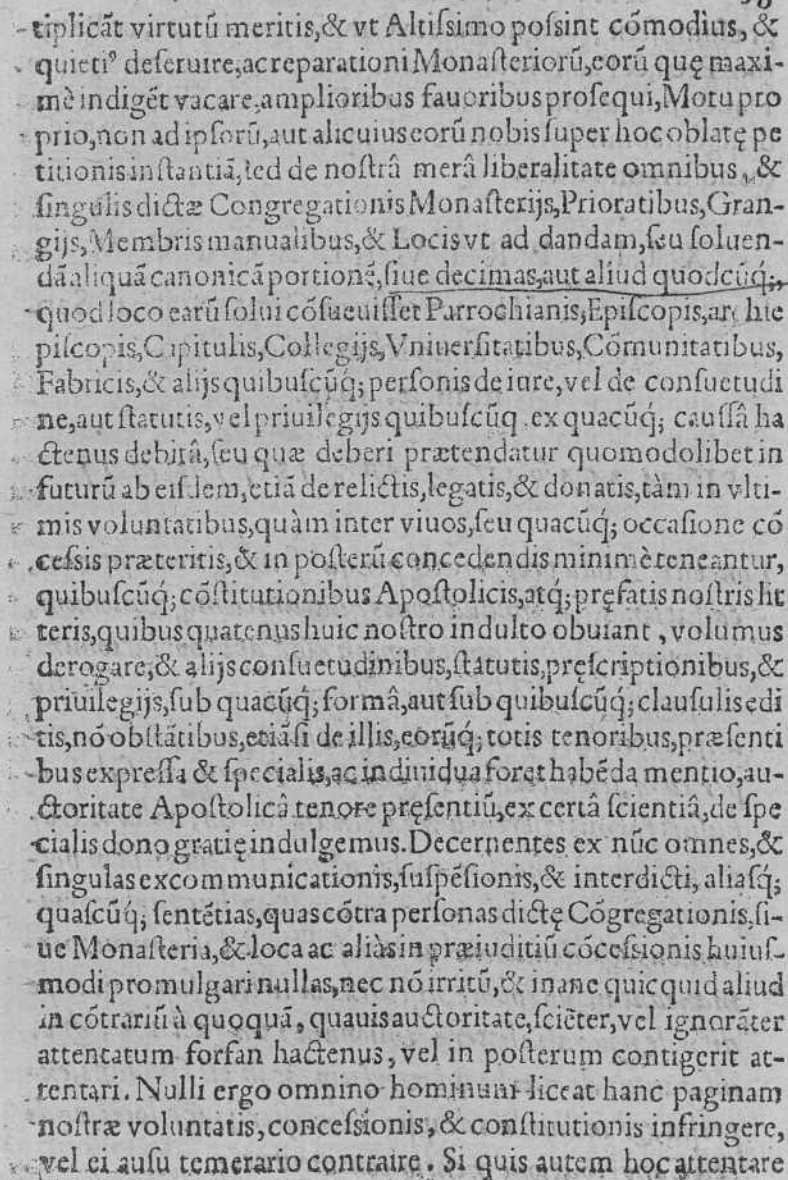 tiplicãt virtutũ meritis,& vt Altiſsimo poſsint cõmodius, &
quietiꝰ deſeruire,ac reparationi Monaſteriorũ,eorũ quę maxi-
mè indigẽt vacare,amplioribus fauoribus proſequi,Motu pro
prio,non ad ipſorũ,aut alicuius eorũ nobis ſuper hoc oblatę pe
titionis inſtantiã,ſed de noſtrâ merâ liberalitate omnibus, &
ſingulis dictæ Congregationis Monaſterijs,Prioratibus,Gran-
gijs,Membris manualibus,& Locis vt ad dandam,ſeu ſoluen-
dã aliquã canonicã portionẽ,ſiue decimas,aut aliud quodcũq́;,
quod loco earũ ſolui cõſueuiſſet Parrochianis,Epiſcopis,archie
piſcopis,Capitulis,Collegijs,Vniuerſitatibus,Cõmunitatibus,
Fabricis,& alijs quibuſcũq́; perſonis de iure, vel de conſuetudi
ne,aut ſtatutis,vel priuilegijs quibuſcũq ex quacũq́; cauſſâ ha
ctenus debitâ,ſeu quæ deberi prætendatur quomodolibet in
futurũ ab eiſdem,etiã de relictis,legatis,& donatis,tàm in vlti-
mis voluntatibus,quàm inter viuos,ſeu quacũq́; occaſione cõ
ceſsis præteritis,& in poſterũ concedendis minimè teneantur,
quibuſcũq́; cõſtitutionibus Apoſtolicis,atq́; pręfatis noſtris lit
teris,quibus quatenus huic noſtro indulto obuiant , volumus
derogare,& alijs conſuetudinibus,ſtatutis,pręſcriptionibus,&
priuilegijs,ſub quacũq́; formâ,aut ſub quibuſcũq́; clauſulis edi
tis,nõ obſtãtibus,etiã ſi de illis,eorũq́; totis tenoribus,præſenti
bus expreſſa & ſpecialis,ac indiuidua foret habẽda mentio,au-
ctoritate Apoſtolicâ tenore pręſentiũ,ex certâ ſcientiâ,de ſpe
cialis dono gratię indulgemus.Decernentes ex nũc omnes,&
ſingulas excommunicationis,ſuſpẽſionis,& interdicti, aliaſq́;
quaſcũq́; ſentẽtias,quas cõtra perſonas dictę Cõgregationis,ſi-
ue Monaſteria,& loca ac aliàs in præiuditiũ cõceſsionis huiuſ-
modi promulgari nullas,nec nõ irritũ,& inane quicquid aliud
in cõtrariũ à quoquã, quauis auctoritate,ſciẽter,vel ignorãter
attentatum forſan hactenus, vel in poſterum contigerit at-
tentari. Nulli ergo omnino hominum liceat hanc paginam
noſtræ voluntatis,conceſsionis, & conſtitutionis infringere,
vel ei auſu temerario contraire. Si quis autem hoc attentare